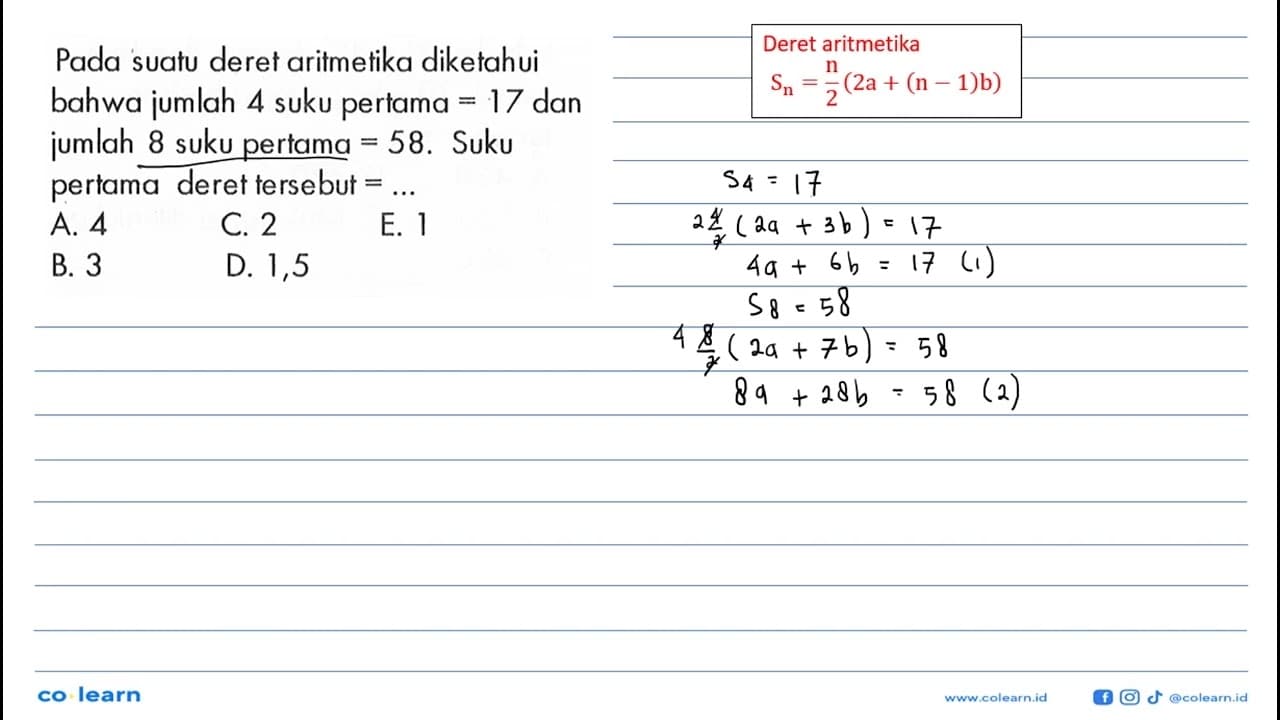 Pada suatu deret aritmetika diketahui
bahwa jumlah 4 suku pertama = 17 dan
jumlah 8 suku pertama = 58. Suku
pertama deret tersebut = ...
A. 4 C. 2 E. 1
B. 3 D. 1,5
Deret aritmetika
Sₙ = n/2 (2a + (n − 1)b)
S4 = 17
2 4/2 (2a + 3b) = 17
4a + 6b = 17 (1)
S8 = 58
4 8/2 (2a + 7b) = 58
8a + 28b = 58 (2)
co·learn
www.colearn.id
@colearn.id